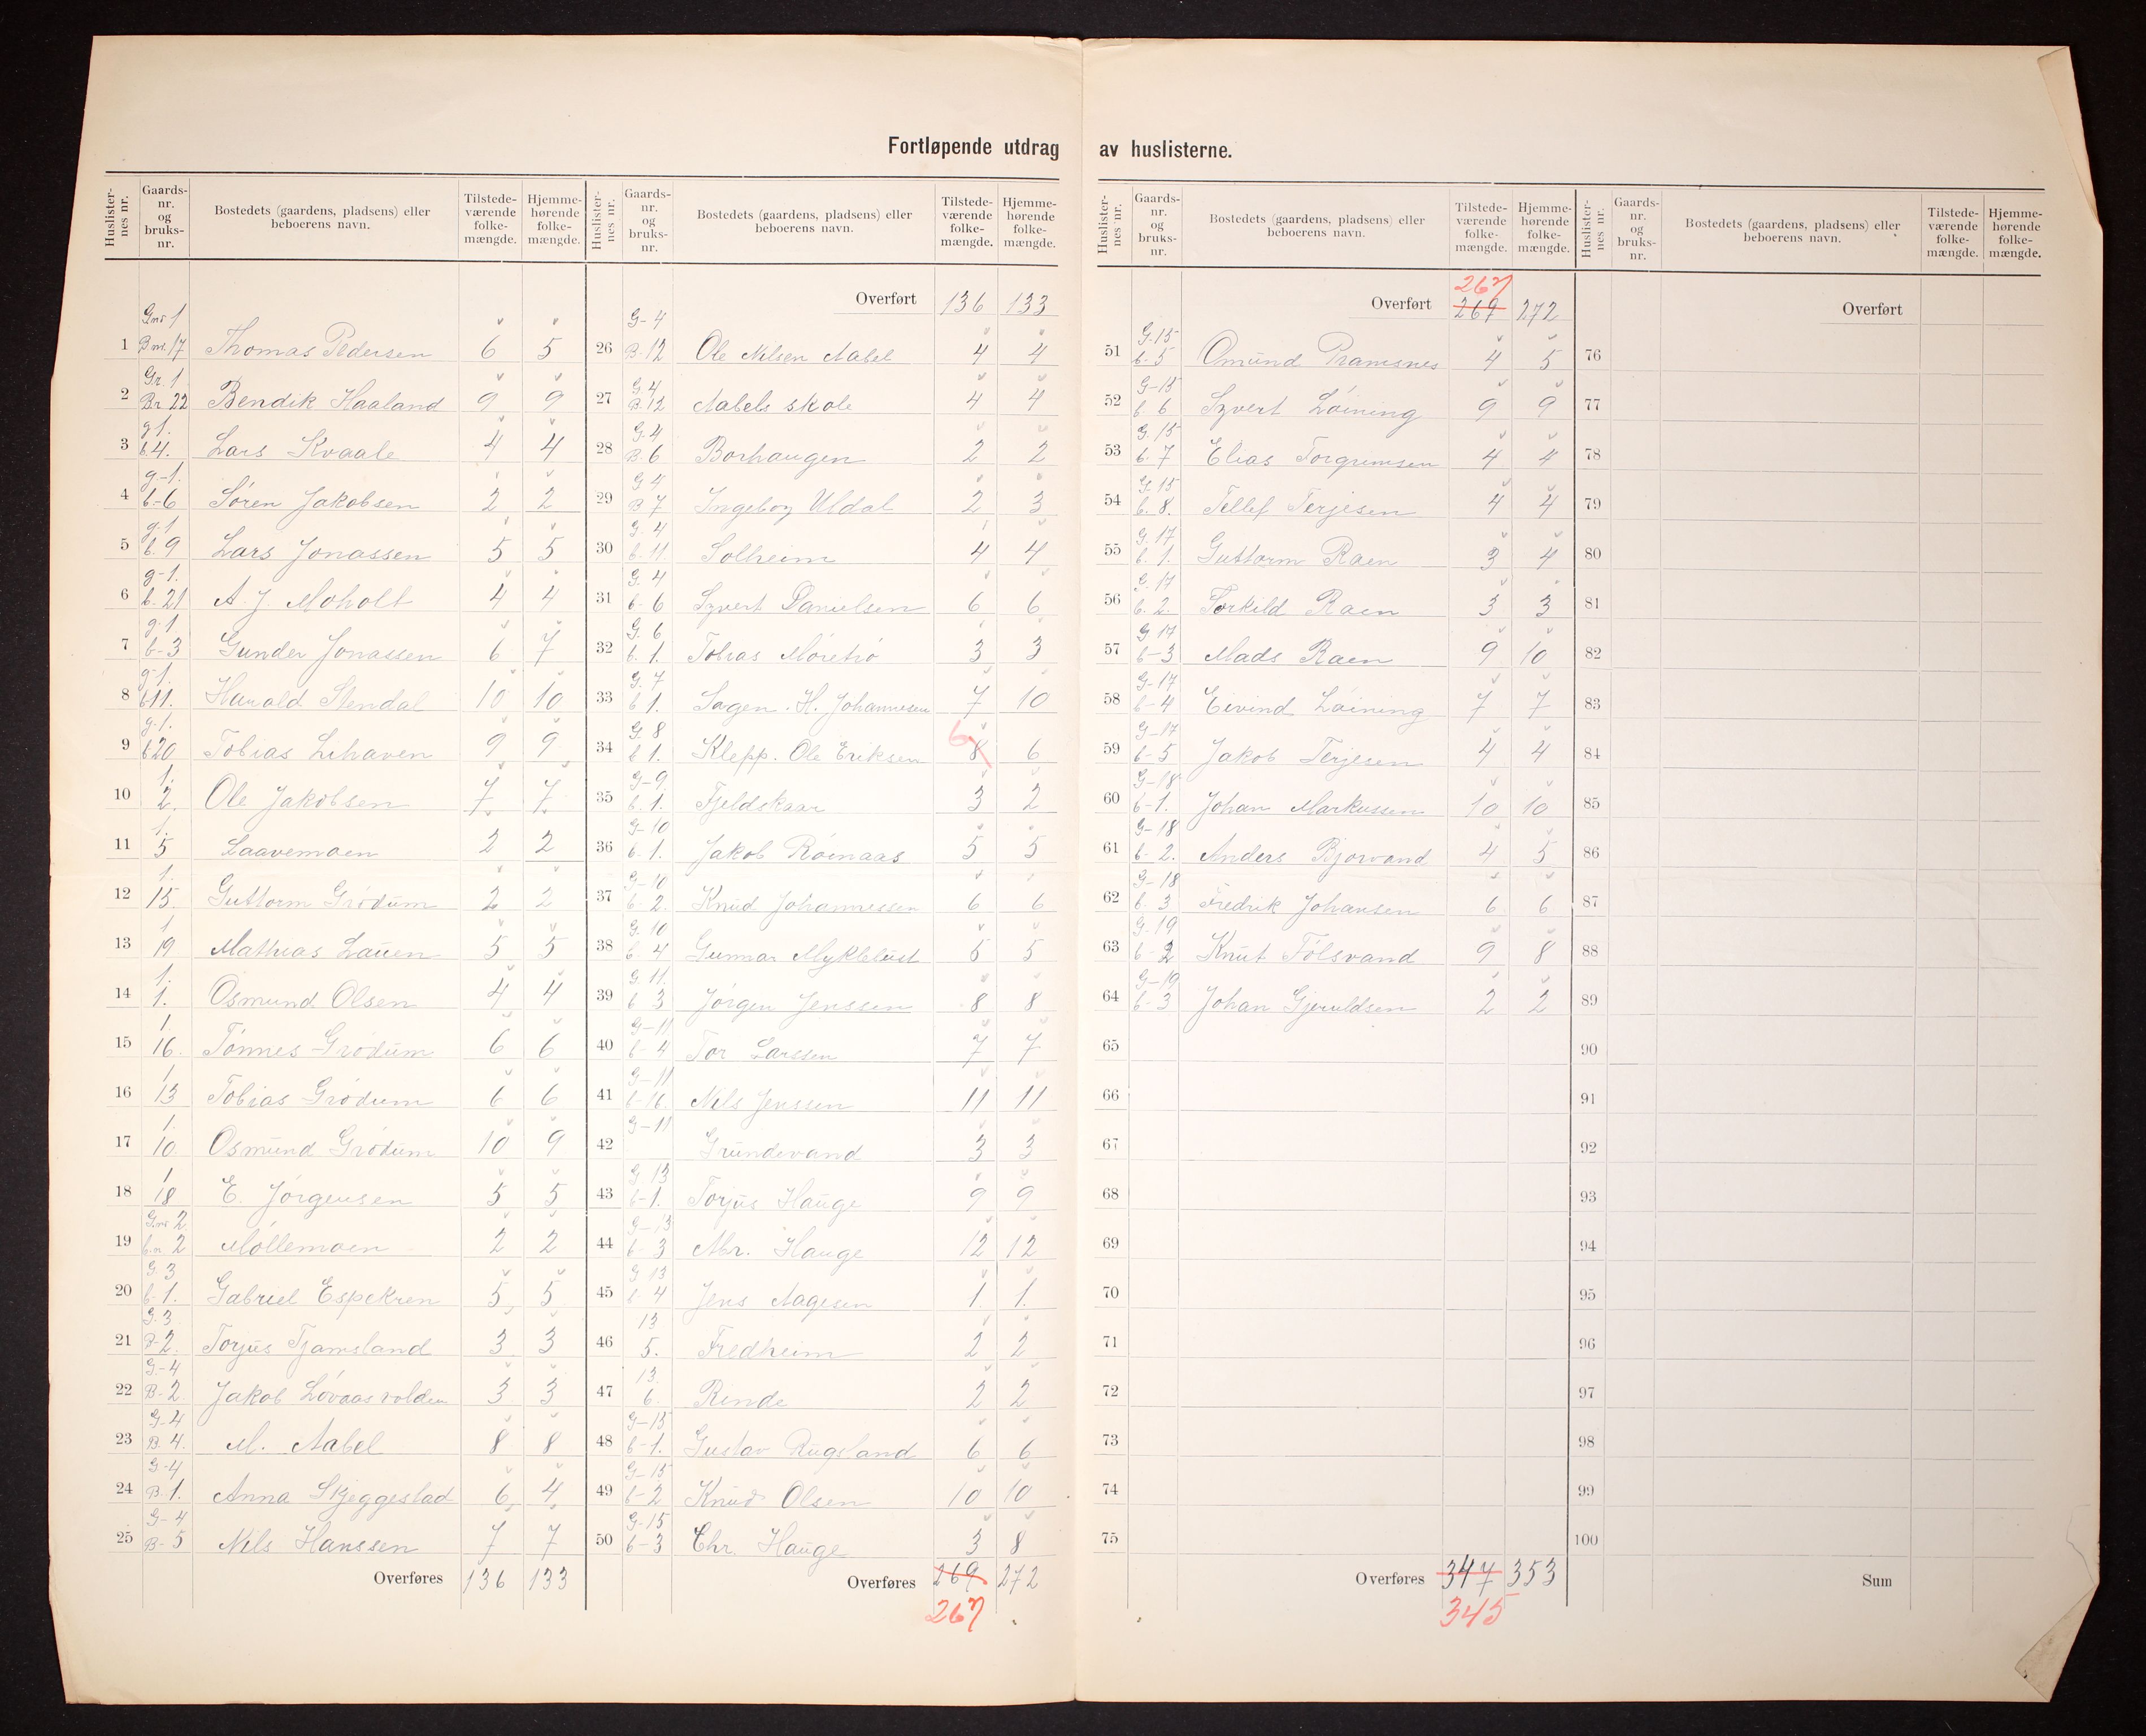 Fortløpende utdrag av huslisterne.
Huslister-nes nr. | Gaards-nr. og bruks-nr. | Bostedets (gaardens, pladsens) eller beboerens navn. | Tilstede-værende folke-mængde. | Hjemme-hørende folke-mængde.
1 Gnr 1 Bnr. 17 Thomas Pedersen 6 5
2 Gr. 1 Br 22 Bendik Haaland 9 9
3 g 1. b 4. Lars Kvaale 4 4
4 g.-1. b-6 Sören Jakobsen 2 2
5 g-1 b. 9 Lars Jonassen 5 5
6 g-1. b. 21 A. J. Moholt 4 4
7 g-1 b-3 Gunder Jonassen 6 7
8 g-1. b 11. Harald Stendal 10 10
9 g-1. b 20 Tobias Lihaven 9 9
10 1. 2. Ole Jakobsen 7 7
11 1. 5 Laavemoen 2 2
12 1. 15. Guttorm Grödum 2 2
13 1 19 Mathias Lauen 5 5
14 1. 1. Osmund Olsen 4 4
15 1. 16. Tönnes Grödum 6 6
16 1. 13 Tobias Grödum 6 6
17 1. 10 Osmund Grödum 10 9
18 1 18 E. Jörgensen 5 5
19 Gnr 2 b.n 2 Möllemoen 2 2
20 G. 3 b-1. Gabriel Espekren 5 5
21 G. 3 B-2. Torjus Tjamsland 3 3
22 G-4 B-2 Jakob Lövaasvolden 3 3
23 G-4 B 4. M. Aabel 8 8
24 G-4 B-1. Anna Skjeggestad 6 4
25 G-4 B-5 Nils Hanssen 7 7
Overføres 136 133
Huslister-nes nr. | Gaards-nr. og bruks-nr. | Bostedets (gaardens, pladsens) eller beboerens navn. | Tilstede-værende folke-mængde. | Hjemme-hørende folke-mængde.
Overført 136 133
26 G-4 B-12 Ole Nilsen Aabel 4 4
27 G 4 B. 12 Aabels skole 4 4
28 G. 4 B. 6 Borhaugen 2 2
29 G 4 B 7 Ingeborg Uldal 2 3
30 G. 4 b-11. Solheim 4 4
31 G. 4 b-6 Syvert Danielsen 6 6
32 G. 6 b. 1. Tobias Möretrö 3 3
33 G. 7 b 1. Sagen. H. Johannesen 7 10
34 G. 8 b 1. Klepp. Ole Eriksen 8 6 6
35 G-9 b. 1. Fjeldskaar 3 2
36 G-10 b. 1. Jakob Röinaas 5 5
37 G-10 b-2 Knud Johannessen 6 6
38 G. 10 b-4 Gunnar Myklebust 5 5
39 G. 11. b 3 Jörgen Jenssen 8 8
40 G-11 b-4 Tor Larssen 7 7
41 G-11 b-16. Nils Jenssen 11 11
42 G-11 Grundevand 3 3
43 G. 13 b-1. Torjus Hauge 9 9
44 G-13 b-3 Abr. Hauge 12 12
45 G 13 b 4 Jens Aagesen 1 1.
46 13 5. Fredheim 2 2
47 13. 6. Rinde 2 2
48 G-15 b-1. Gustav Rugsland 6 6
49 G-15 b-2 Knud Olsen 10 10
50 G-15 b-3 Chr. Hauge 3 8
Overføres 269 272
267
Huslister-nes nr. | Gaards-nr. og bruks-nr. | Bostedets (gaardens, pladsens) eller beboerens navn. | Tilstede-værende folke-mængde. | Hjemme-hørende folke-mængde.
267
Overført 269 272
51 G. 15 b-5 Omund Pramsnes 4 5
52 G-15 b 6 Syvert Löining 9 9
53 G. 15 b. 7 Elias Torgrimsen 4 4
54 G. 15 b. 8. Tellef Terjesen 4 4
55 G. 17 b. 1. Guttorm Raen 3 4
56 G. 17 b. 2. Torkild Raen 3 3
57 G 17 b-3 Mads Raen 9 10
58 G-17 b-4 Eivind Löining 7 7
59 G-17 b-5 Jakob Terjesen 4 4
60 G-18 b-1. Johan Markussen 10 10
61 G-18 b-2. Anders Bjorvand 4 5
62 G-18 b. 3 Fredrik Johansen 6 6
63 G. 19 b-2 Knut Fölsvand 9 8
64 G-19 b-3 Johan Gjeruldsen 2 2
65
66
67
68
69
70
71
72
73
74
75
Overføres 347 353
345
Huslister-nes nr. | Gaards-nr. og bruks-nr. | Bostedets (gaardens, pladsens) eller beboerens navn. | Tilstede-værende folke-mængde. | Hjemme-hørende folke-mængde.
Overført
76
77
78
79
80
81
82
83
84
85
86
87
88
89
90
91
92
93
94
95
96
97
98
99
100
Sum